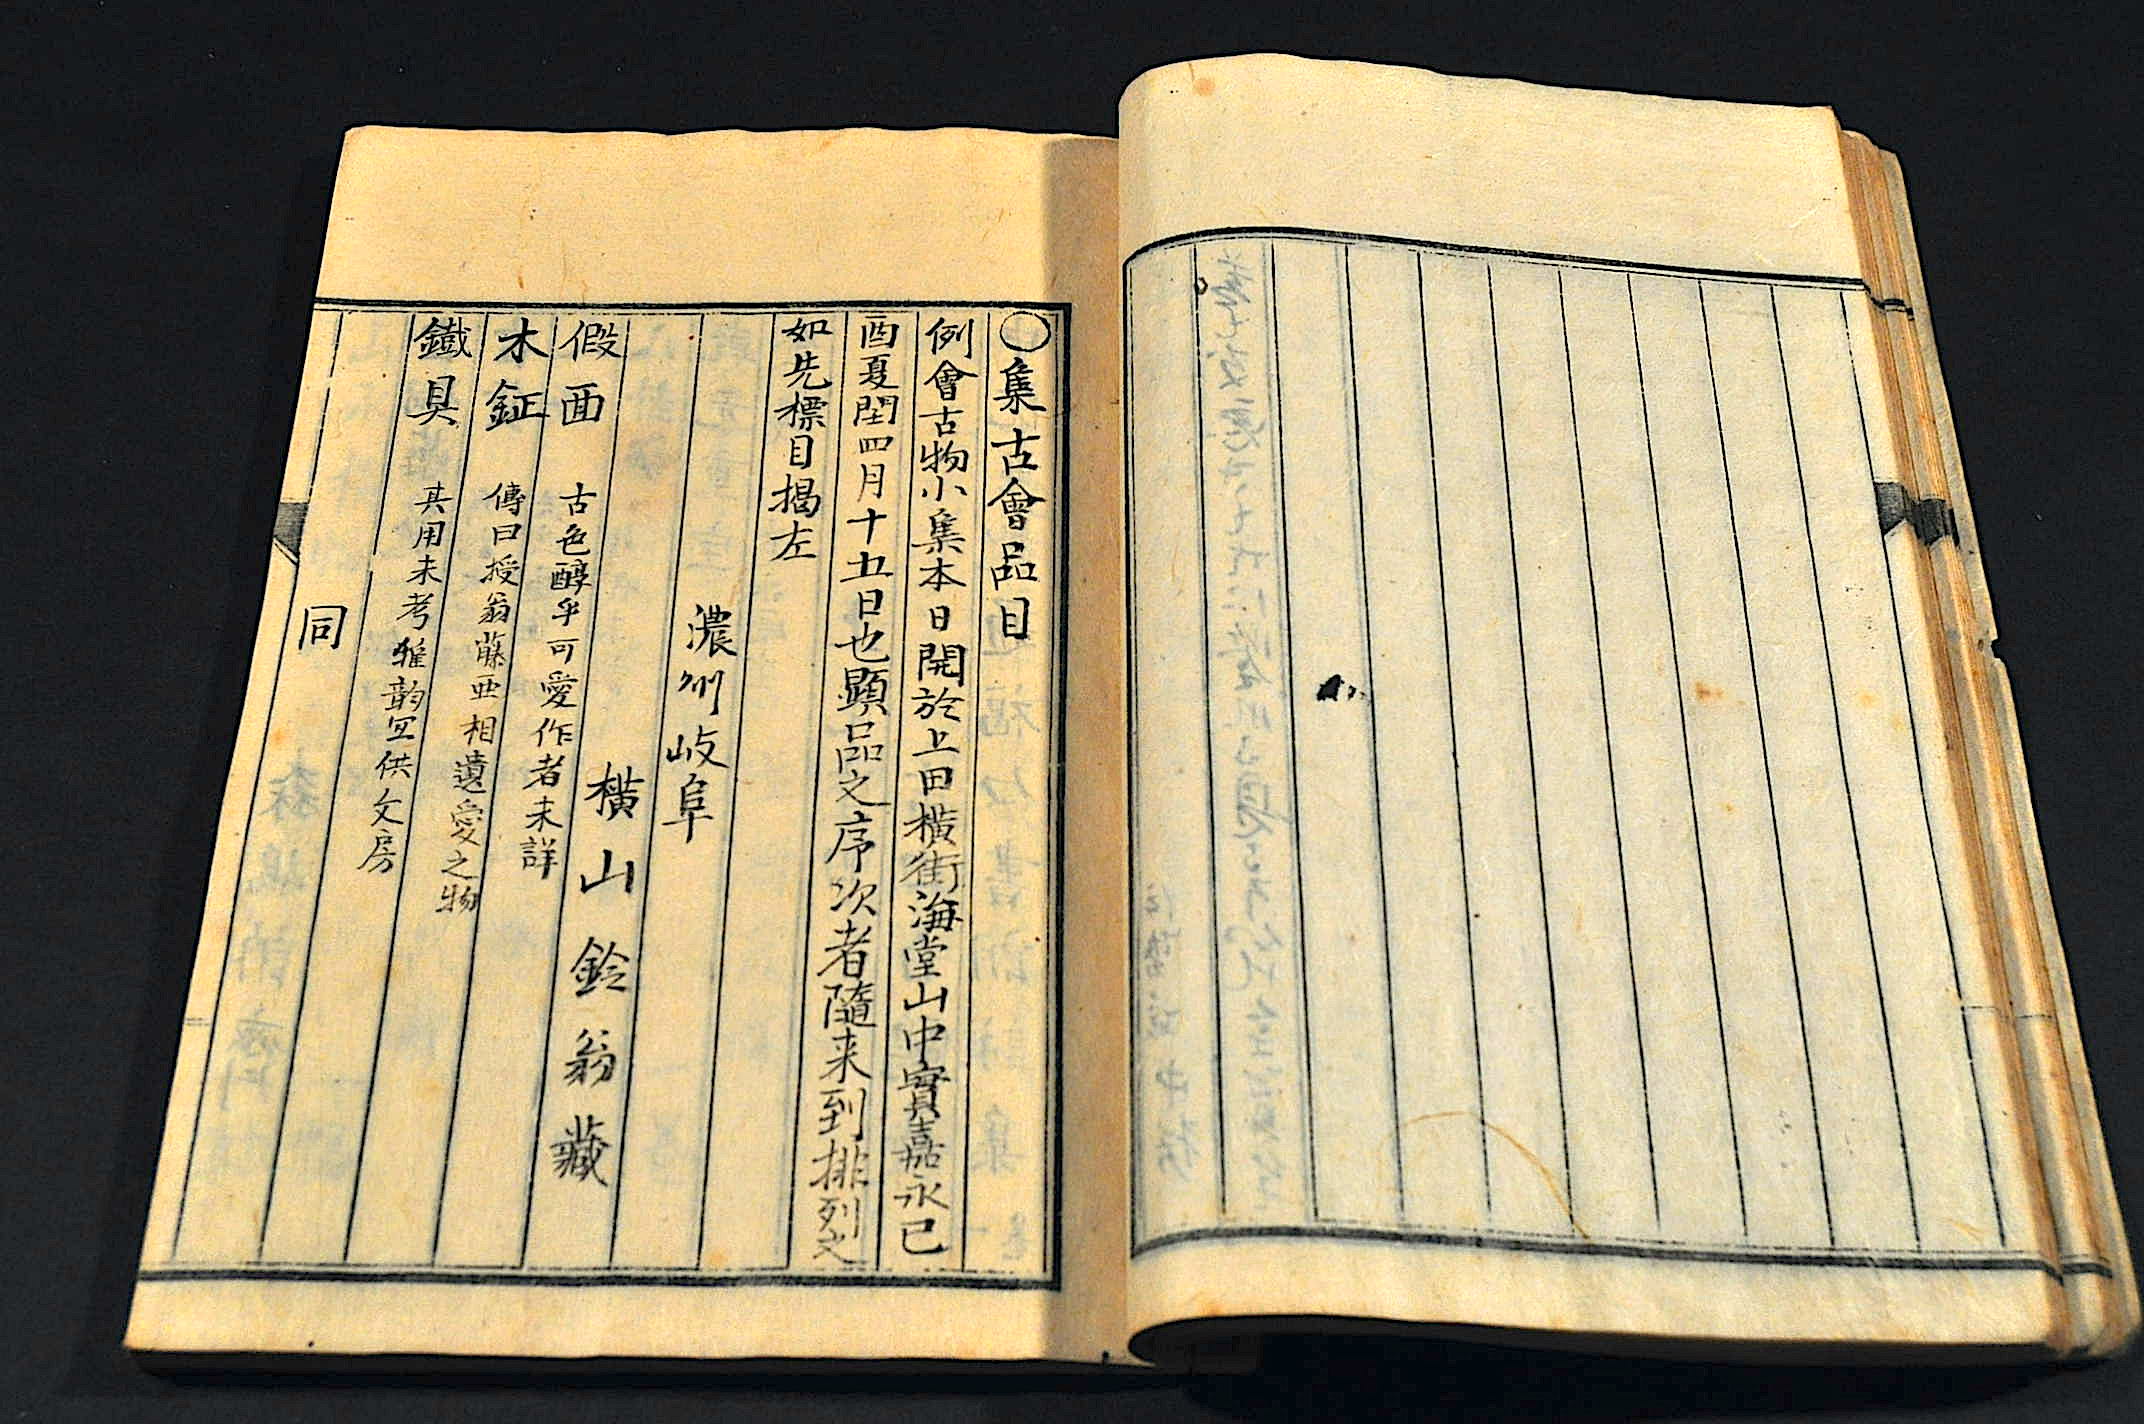 ○集古會品目
例會古物小集本日開於上田横街海堂山中實嘉永己
酉夏閏四月十五日也顕品之序次者隨来到排列之
如先標目掲左
濃州岐阜
横山鈴翁藏
假面 古色醇乎可愛作者未詳
木鉦 傳曰授翁藤亜相遺愛之物
鐵具 其用未考雅韵宜供文房
同